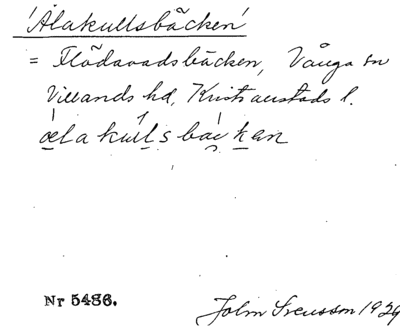 'Ålakullsbäcken'
= Flödavadsbäcken, Vånga sn
Villands hd, Kristianstads l.
ælakulsbäikan
Nr 5486.
John Svensson 1929